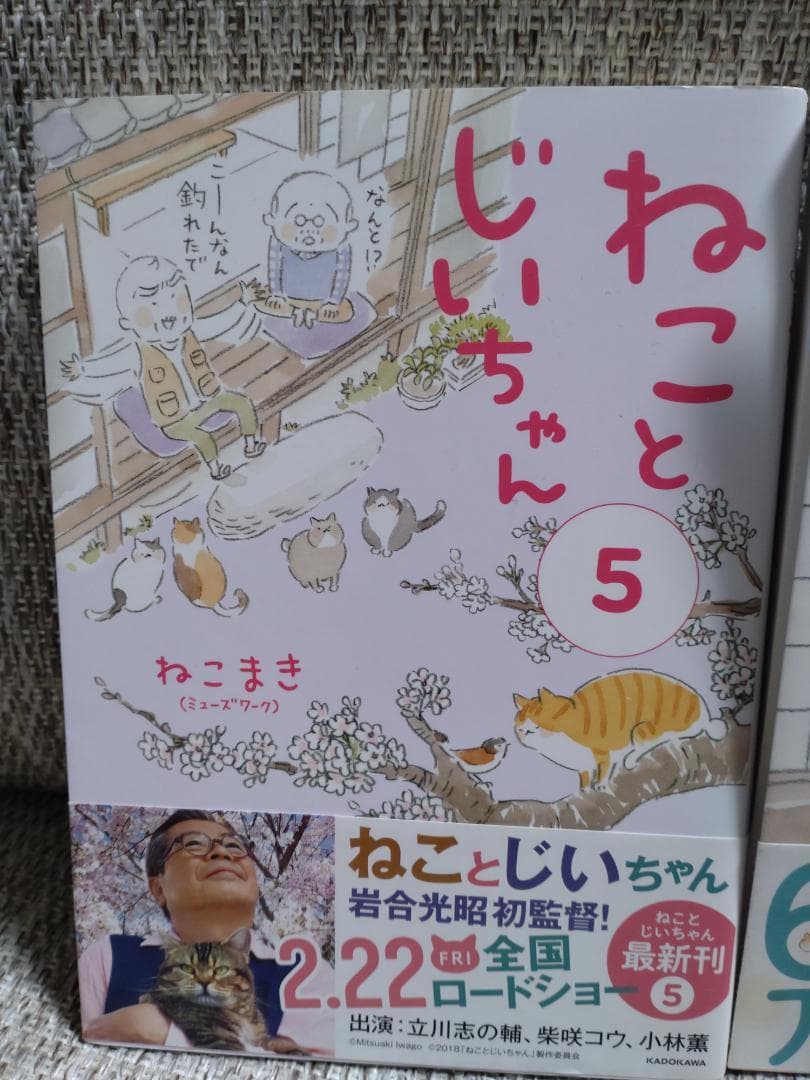 ねこと
じいちゃん
5
なんと!?
こーんなん
釣れたで
ねこまき
(ミューズワーク)
ねことじいちゃん
岩合光昭初監督!
2.22 FRI 全国
ロードショー
ねこと
じいちゃん
最新刊
5
出演:立川志の輔、柴咲コウ、小林薫
©Mitsuaki Iwago ©2018「ねことじいちゃん」製作委員会
KADOKAWA
6